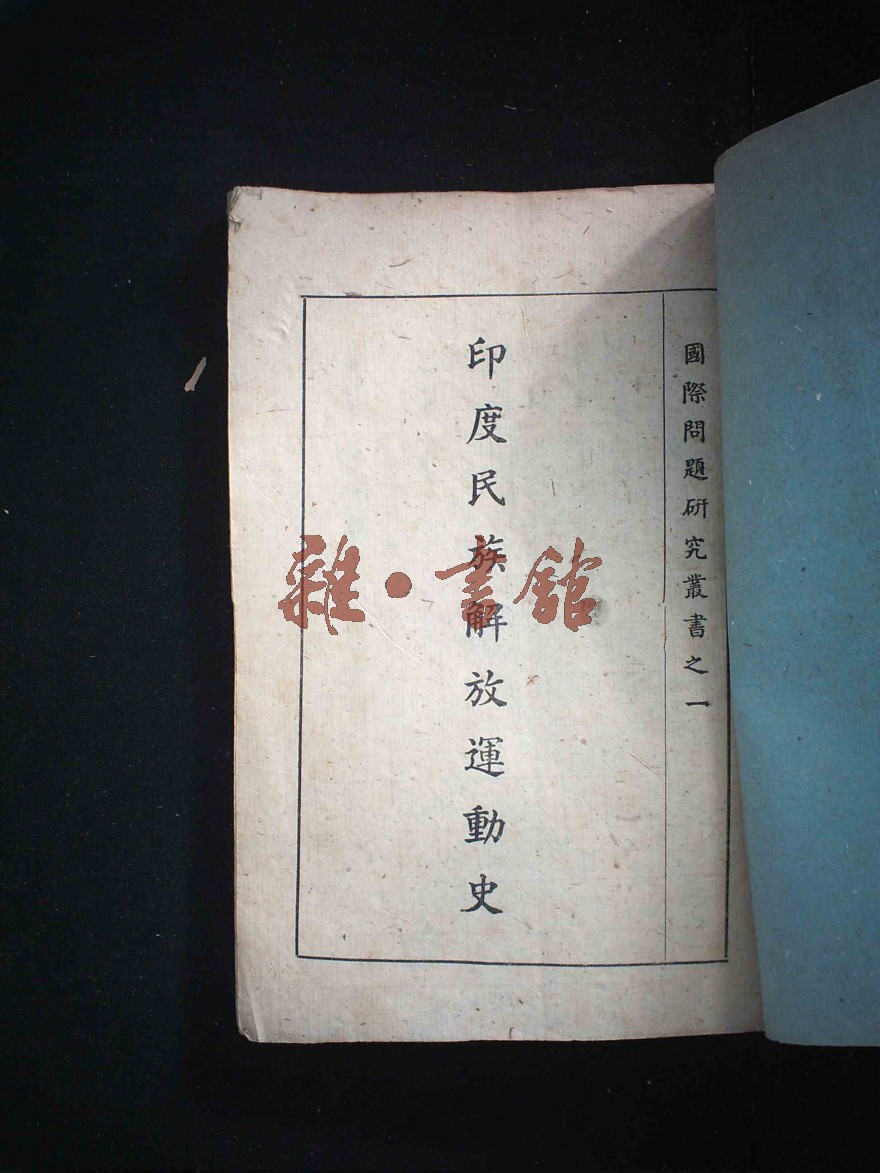 國際問題研究叢書之一
印度民族解放運動史
雜·書館